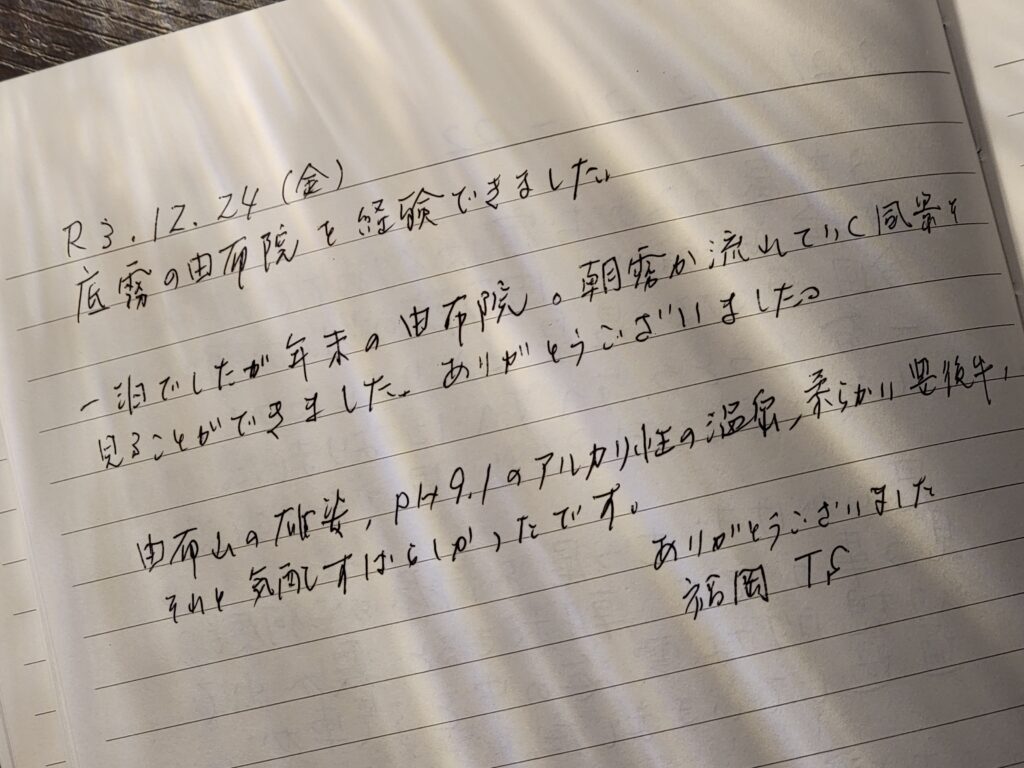 R3.12.24(金)
底霧の由布院を経験できました。
一泊でしたが年末の由布院。朝霧が流れていく風景を
見ることができました。ありがとうございました。
由布山の雄姿，PH9.1のアルカリ性の温泉、柔らかい豊後牛，
それと気配しすばらしかったです。
ありがとうございました
福岡 T.S